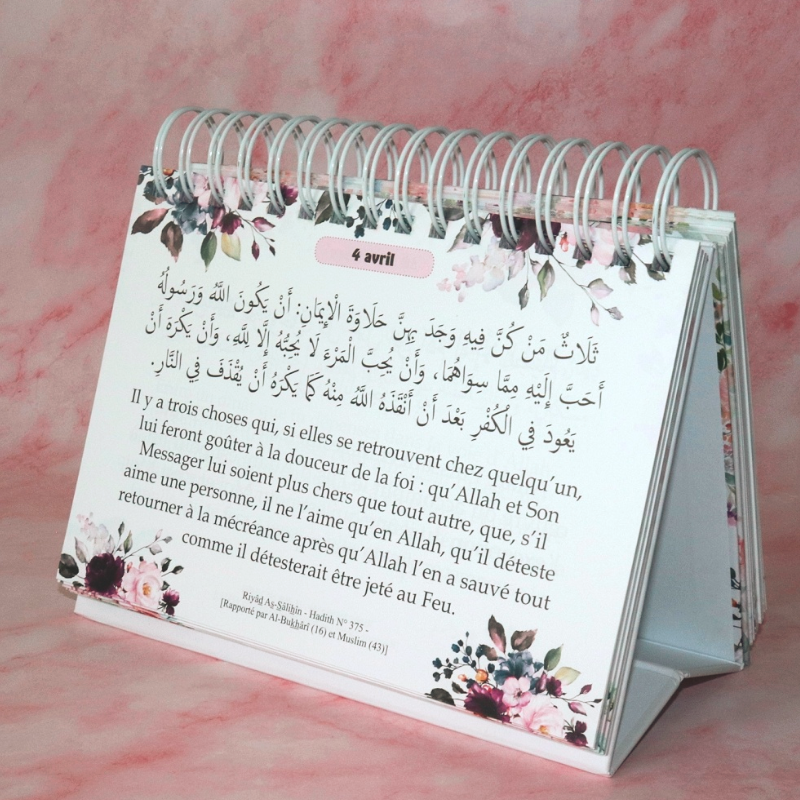 4 avril
ثَلَاثٌ مَنْ كُنَّ فِيهِ وَجَدَ بِهِنَّ حَلَاوَةَ الْإِيمَانِ: أَنْ يَكُونَ اللَّهُ وَرَسُولُهُ
أَحَبَّ إِلَيْهِ مِمَّا سِوَاهُمَا، وَأَنْ يُحِبَّ الْمَرْءَ لَا يُحِبُّهُ إِلَّا لِلَّهِ، وَأَنْ يَكْرَهَ أَنْ
يَعُودَ فِي الْكُفْرِ بَعْدَ أَنْ أَنْقَذَهُ اللَّهُ مِنْهُ كَمَا يَكْرَهُ أَنْ يُقْذَفَ فِي النَّارِ.
Il y a trois choses qui, si elles se retrouvent chez quelqu'un,
lui feront goûter à la douceur de la foi : qu'Allah et Son
Messager lui soient plus chers que tout autre, que, s'il
aime une personne, il ne l'aime qu'en Allah, qu'il déteste
retourner à la mécréance après qu'Allah l'en a sauvé tout
comme il détesterait être jeté au Feu.
Riyâḍ Aṣ-Ṣâliḥin - Hadith N° 375 -
[Rapporté par Al-Bukhârî (16) et Muslim (43)]